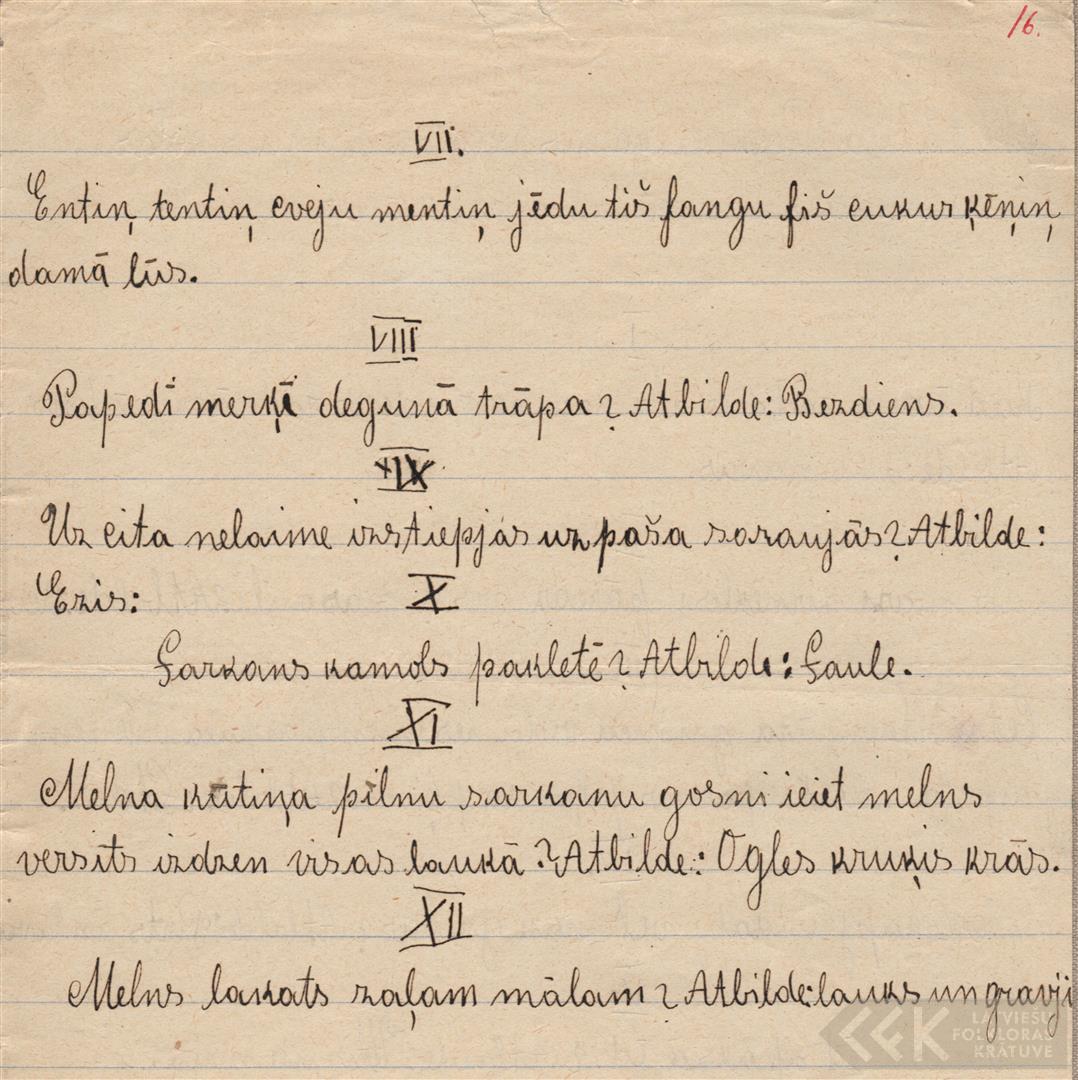 16.
VII.
Entiņ tentiņ cveju mentiņ jēdu tiš fangu fiš cukur ķēņiņ
damā lūs.
VIII
Papedī mērķē degunā trāpa? Atbilde: Bezdiens.
IX
Uz cita nelaime izstiepjas uz paša saraujās? Atbilde:
Ezis:
X
Sarkans kamols pakletē? Atbilde: Saule.
XI
Melna kūtiņa pilnu sarkanu gosni ieiet melns
versits izdzen visas laukā? Atbilde: Ogles kruķis krās.
XII
Melns lakats zaļam mālam? Atbilde: lauks un gravji
LATVIEŠU
FOLKLORAS
KRĀTUVE